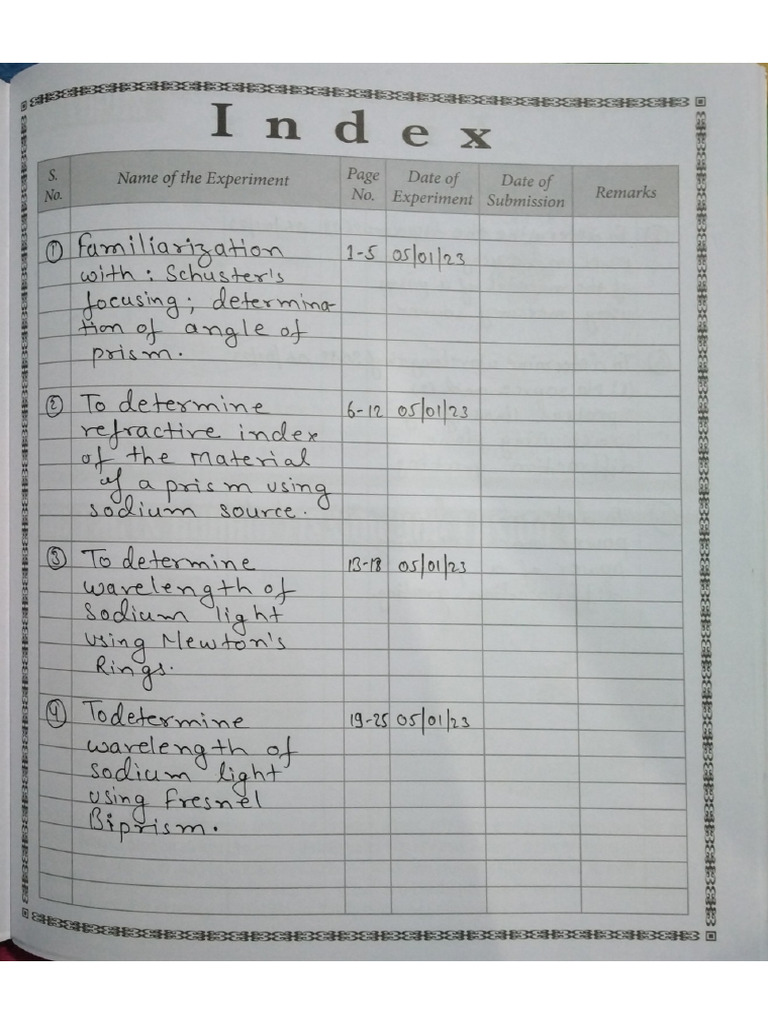 Index
S. No. Name of the Experiment Page No. Date of Experiment Date of Submission Remarks
① Familiarization 1-5 05/01/23
with: Schuster's
focusing; determina-
tion of angle of
prism.
② To determine 6-12 05/01/23
refractive index
of the Material
of a prism using
sodium source.
③ To determine 13-18 05/01/23
wavelength of
Sodium light
using Newton's
Rings.
④ To determine 19-25 05/01/23
wavelength of
sodium light
using Fresnel
Biprism.